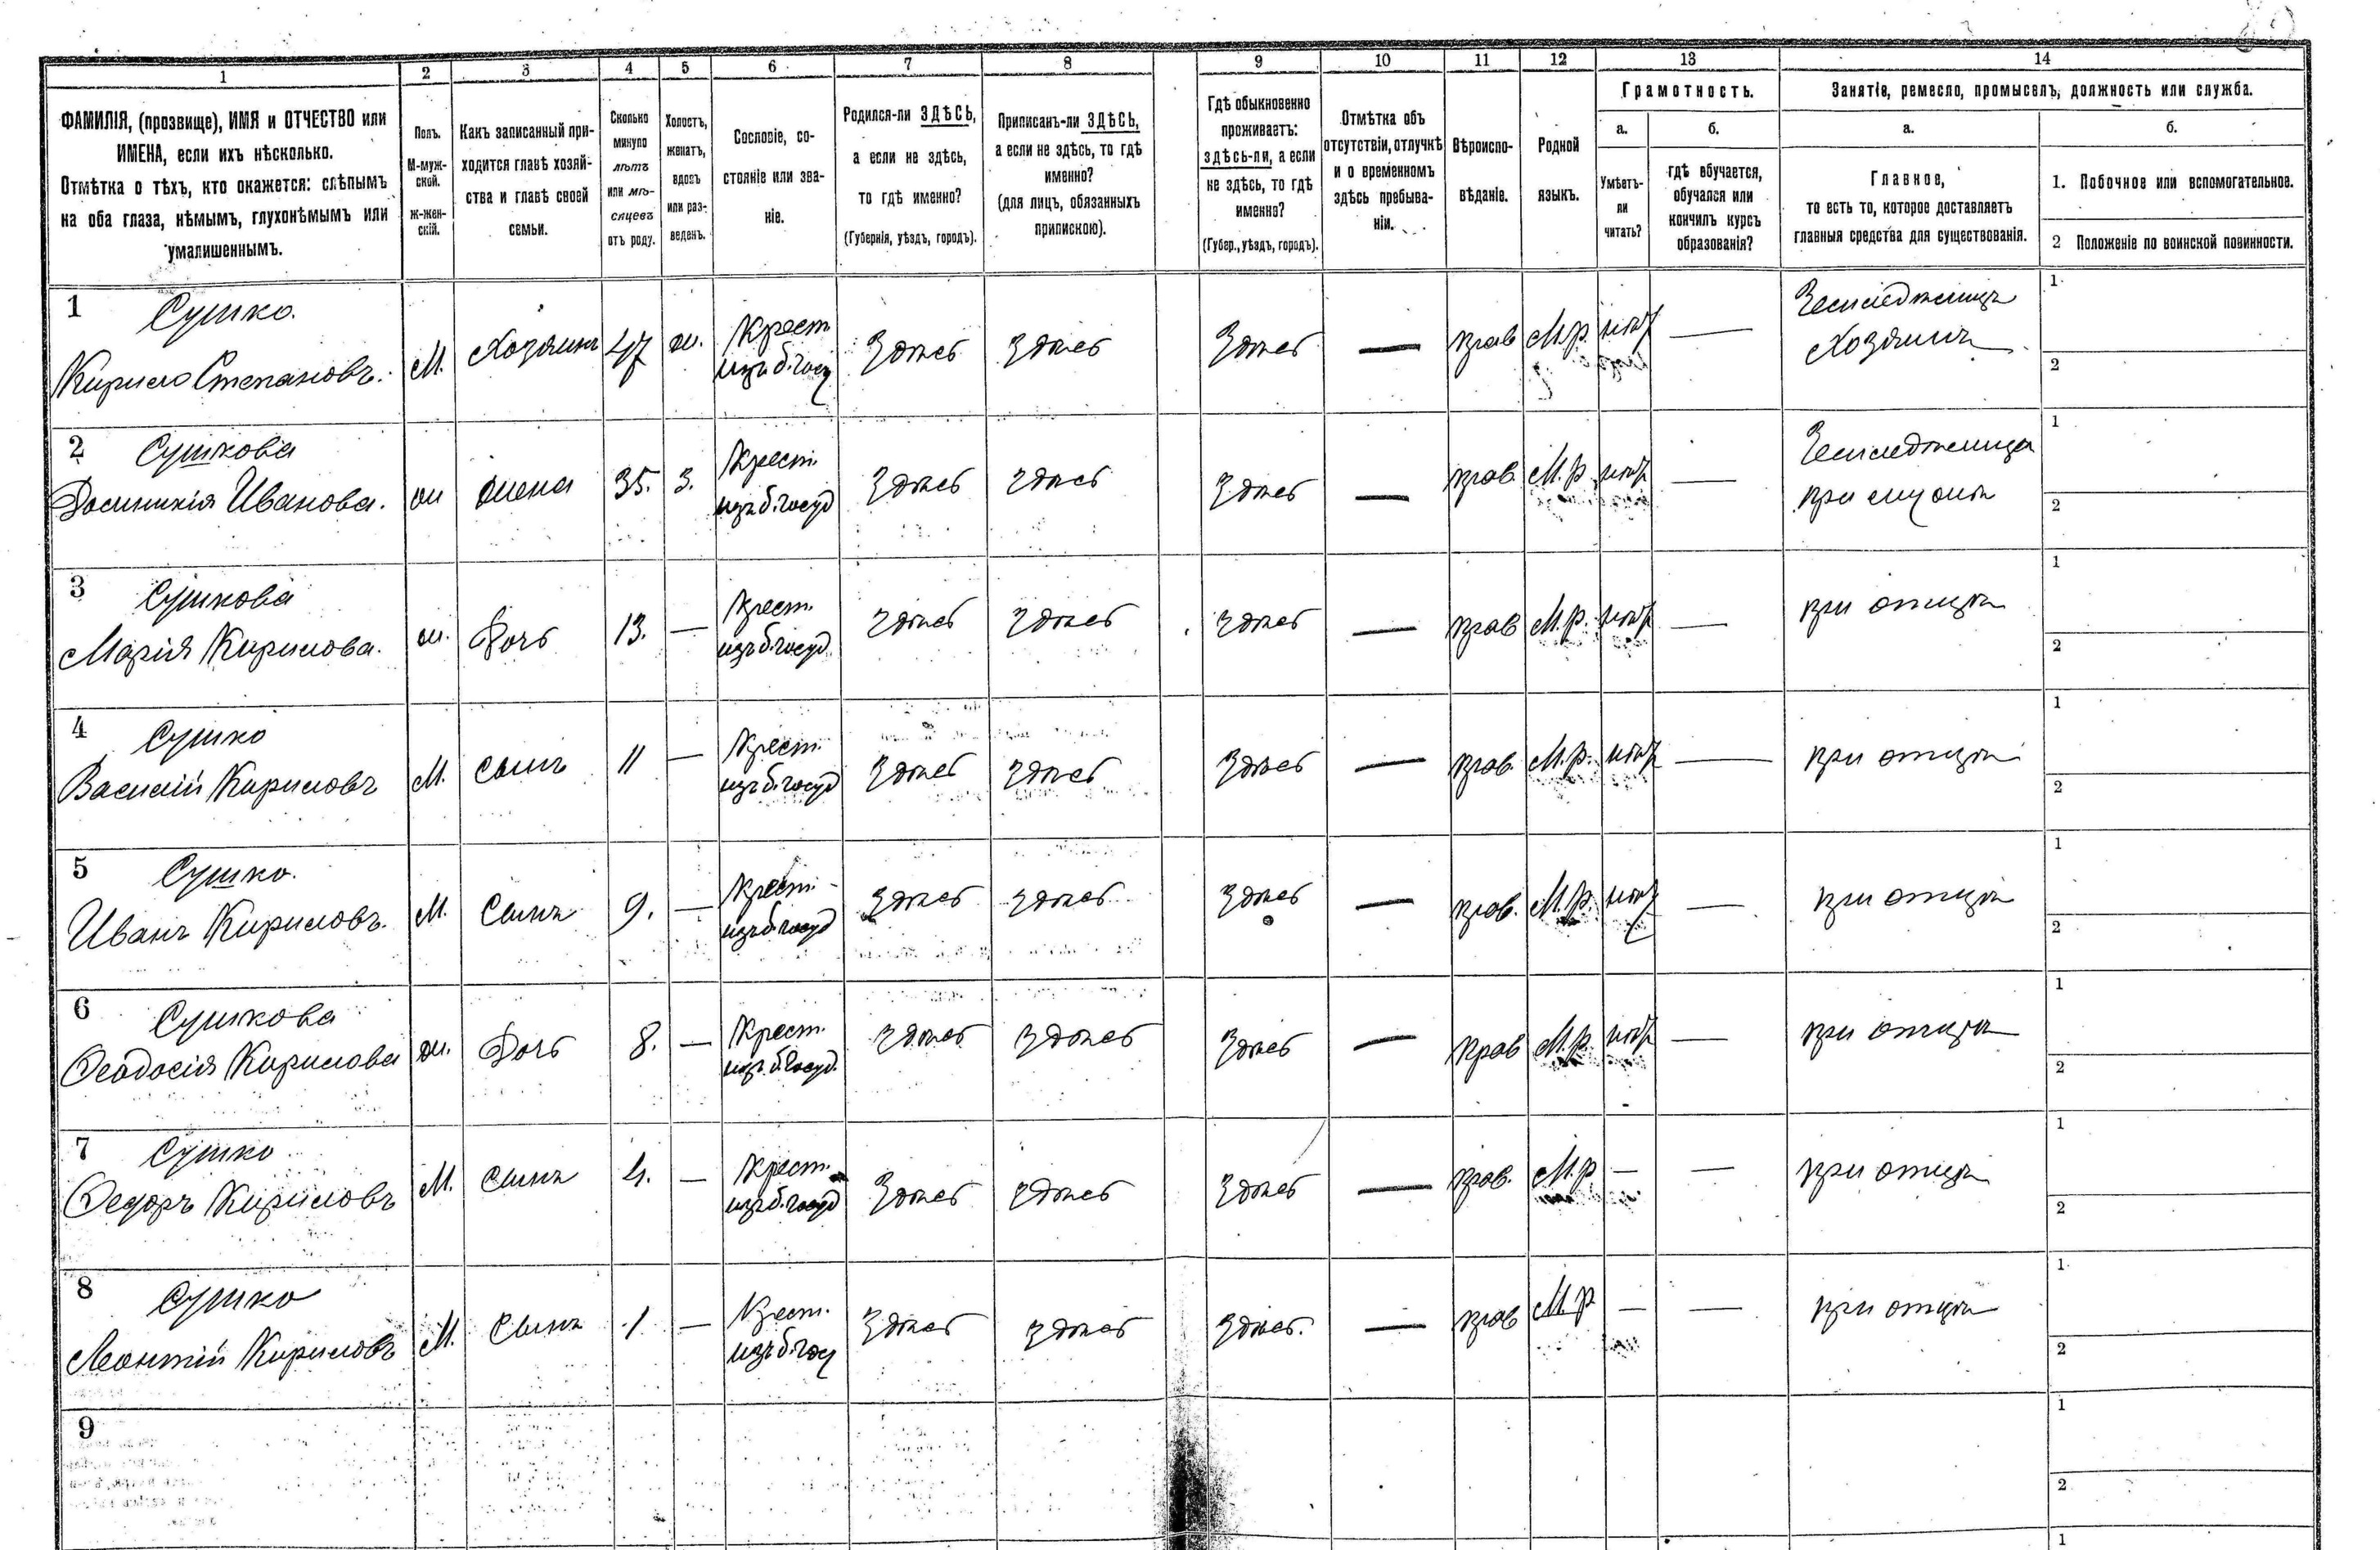 1 2 3 4 5 6 7 8 9 10 11 12 13 14
ФАМИЛІЯ, (прозвище), ИМЯ и ОТЧЕСТВО или
ИМЕНА, если ихъ нѣсколько.
Отмѣтка о тѣхъ, кто окажется: слѣпымъ
на оба глаза, нѣмымъ, глухонѣмымъ или
умалишеннымъ.
Полъ.
М-муж-
ской.
Ж-жен-
скій.
Какъ записанный при-
ходится главѣ хозяй-
ства и главѣ своей
семьи.
Сколько
минуло
лѣтъ
или мѣ-
сяцевъ
отъ роду.
Холостъ,
женатъ,
вдовъ
или раз-
веденъ.
Сословіе, со-
стояніе или зва-
ніе.
Родился-ли ЗДѢСЬ,
а если не здѣсь,
то гдѣ именно?
(Губернія, уѣздъ, городъ).
Приписанъ-ли ЗДѢСЬ,
а если не здѣсь, то гдѣ
именно?
(для лицъ, обязанныхъ
припискою).
Гдѣ обыкновенно
проживаетъ:
здѣсь-ли, а если
не здѣсь, то гдѣ
именно?
(Губер., уѣздъ, городъ).
Отмѣтка объ
отсутствіи, отлучкѣ
и о временномъ
здѣсь пребыва-
ніи.
Вѣроиспо-
вѣданіе.
Родной
языкъ.
Грамотность.
а.
Умѣетъ-
ли
читать?
б.
гдѣ обучается,
обучался или
кончилъ курсъ
образованія?
Занятіе, ремесло, промыселъ, должность или служба.
а.
Главное,
то есть то, которое доставляетъ
главныя средства для существованія.
б.
1. Побочное или вспомогательное.
2 Положеніе по воинской повинности.
1 Сушко.
Кирило Степановъ.
М. Хозяинъ 47 ж. Крест. Здѣсь Здѣсь Здѣсь — прав М.р. нѣтъ — Земледѣлецъ 1
изъ б. госуд Хозяинъ 2
2 Сушкова
Домникія Иванова.
ж жена 35. З. Крест. Здѣсь Здѣсь Здѣсь — прав. М.р. нѣтъ — Земледѣлица 1
изъ б. госуд при мужѣ 2
3 Сушкова
Марія Кирилова.
ж. Дочь 13. — Крест. Здѣсь Здѣсь Здѣсь — прав М.р. нѣтъ — при отцѣ 1
изъ б. госуд 2
4 Сушко
Василій Кириловъ
М. сынъ 11 — Крест. Здѣсь Здѣсь Здѣсь — прав. М.р. нѣтъ — при отцѣ 1
изъ б. госуд 2
5 Сушко.
Иванъ Кириловъ.
М. Сынъ 9. — Крест. Здѣсь Здѣсь Здѣсь — прав. М.р. нѣтъ — при отцѣ 1
изъ б. госуд 2
6 Сушкова
Ѳеодосія Кирилова
ж. Дочь 8. — Крест. Здѣсь Здѣсь Здѣсь — прав М.р. нѣтъ — при отцѣ 1
изъ б. госуд. 2
7 Сушко
Ѳедоръ Кириловъ
М. Сынъ 4. — Крест. Здѣсь Здѣсь Здѣсь — прав. М.р — — при отцѣ 1
изъ б. госуд 2
8 Сушко
Леонтій Кириловъ
М. Сынъ 1 — Крест. Здѣсь Здѣсь Здѣсь. — прав М.р — — при отцѣ 1
изъ б. госу 2
9 1
2
1